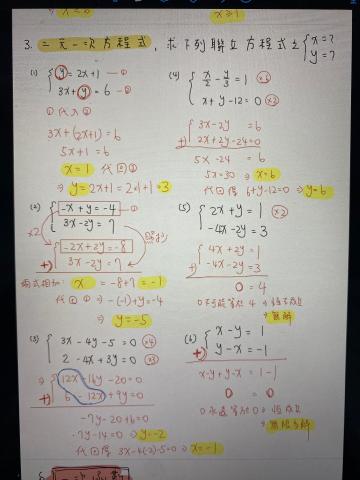 ⇒ x=6
x≥1
3. 二元一次方程式, 求下列聯立方程式之 { x=? y=?
(1) { y = 2x+1 —①
3x+y = 6 —②
①代入②
3x+(2x+1)=6
5x+1 = 6
x=1 代回①
⇒ y=2x+1=2·1+1=3
(2) { -x+y = -4 —①
3x-2y = 7
x2
照抄
-2x+2y = -8
+) 3x-2y = 7
兩式相加: x = -8+7 = -1
代回① ⇒ -(-1)+y=-4
⇒ y=-5
(3) { 3x-4y-5=0 x4
2-4x+3y=0 x3
⇒ { 12x-16y-20=0
+) 6-12x+9y=0
-7y-20+6=0
-7y-14=0 ⇒ y=-2
代回得 3x-4(-2)-5=0 ⇒ x=-1
(4) { x/2 - y/3 = 1 x6
x+y-12=0 x2
3x-2y = 6
+) 2x+2y-24=0
5x-24 = 6
5x=30 ⇒ x=6
代回得 6+y-12=0 ⇒ y=6
(5) { 2x+y = 1 x2
-4x-2y = 3
4x+2y = 1
+) -4x-2y = 3
0 = 4
0不可能等於4
⇒ 無解
(6) { x-y = 1
+) y-x = -1
x-y+y-x = 1-1
0 = 0
0永遠等於0
⇒ 無限多解